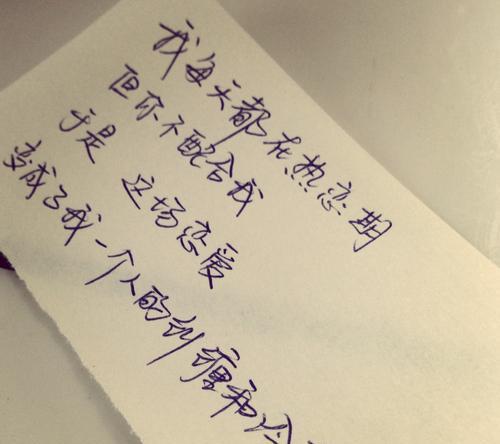 我每天都在热恋期
但你不配合我
于是 这场恋爱
变成了我一个人的纠缠和